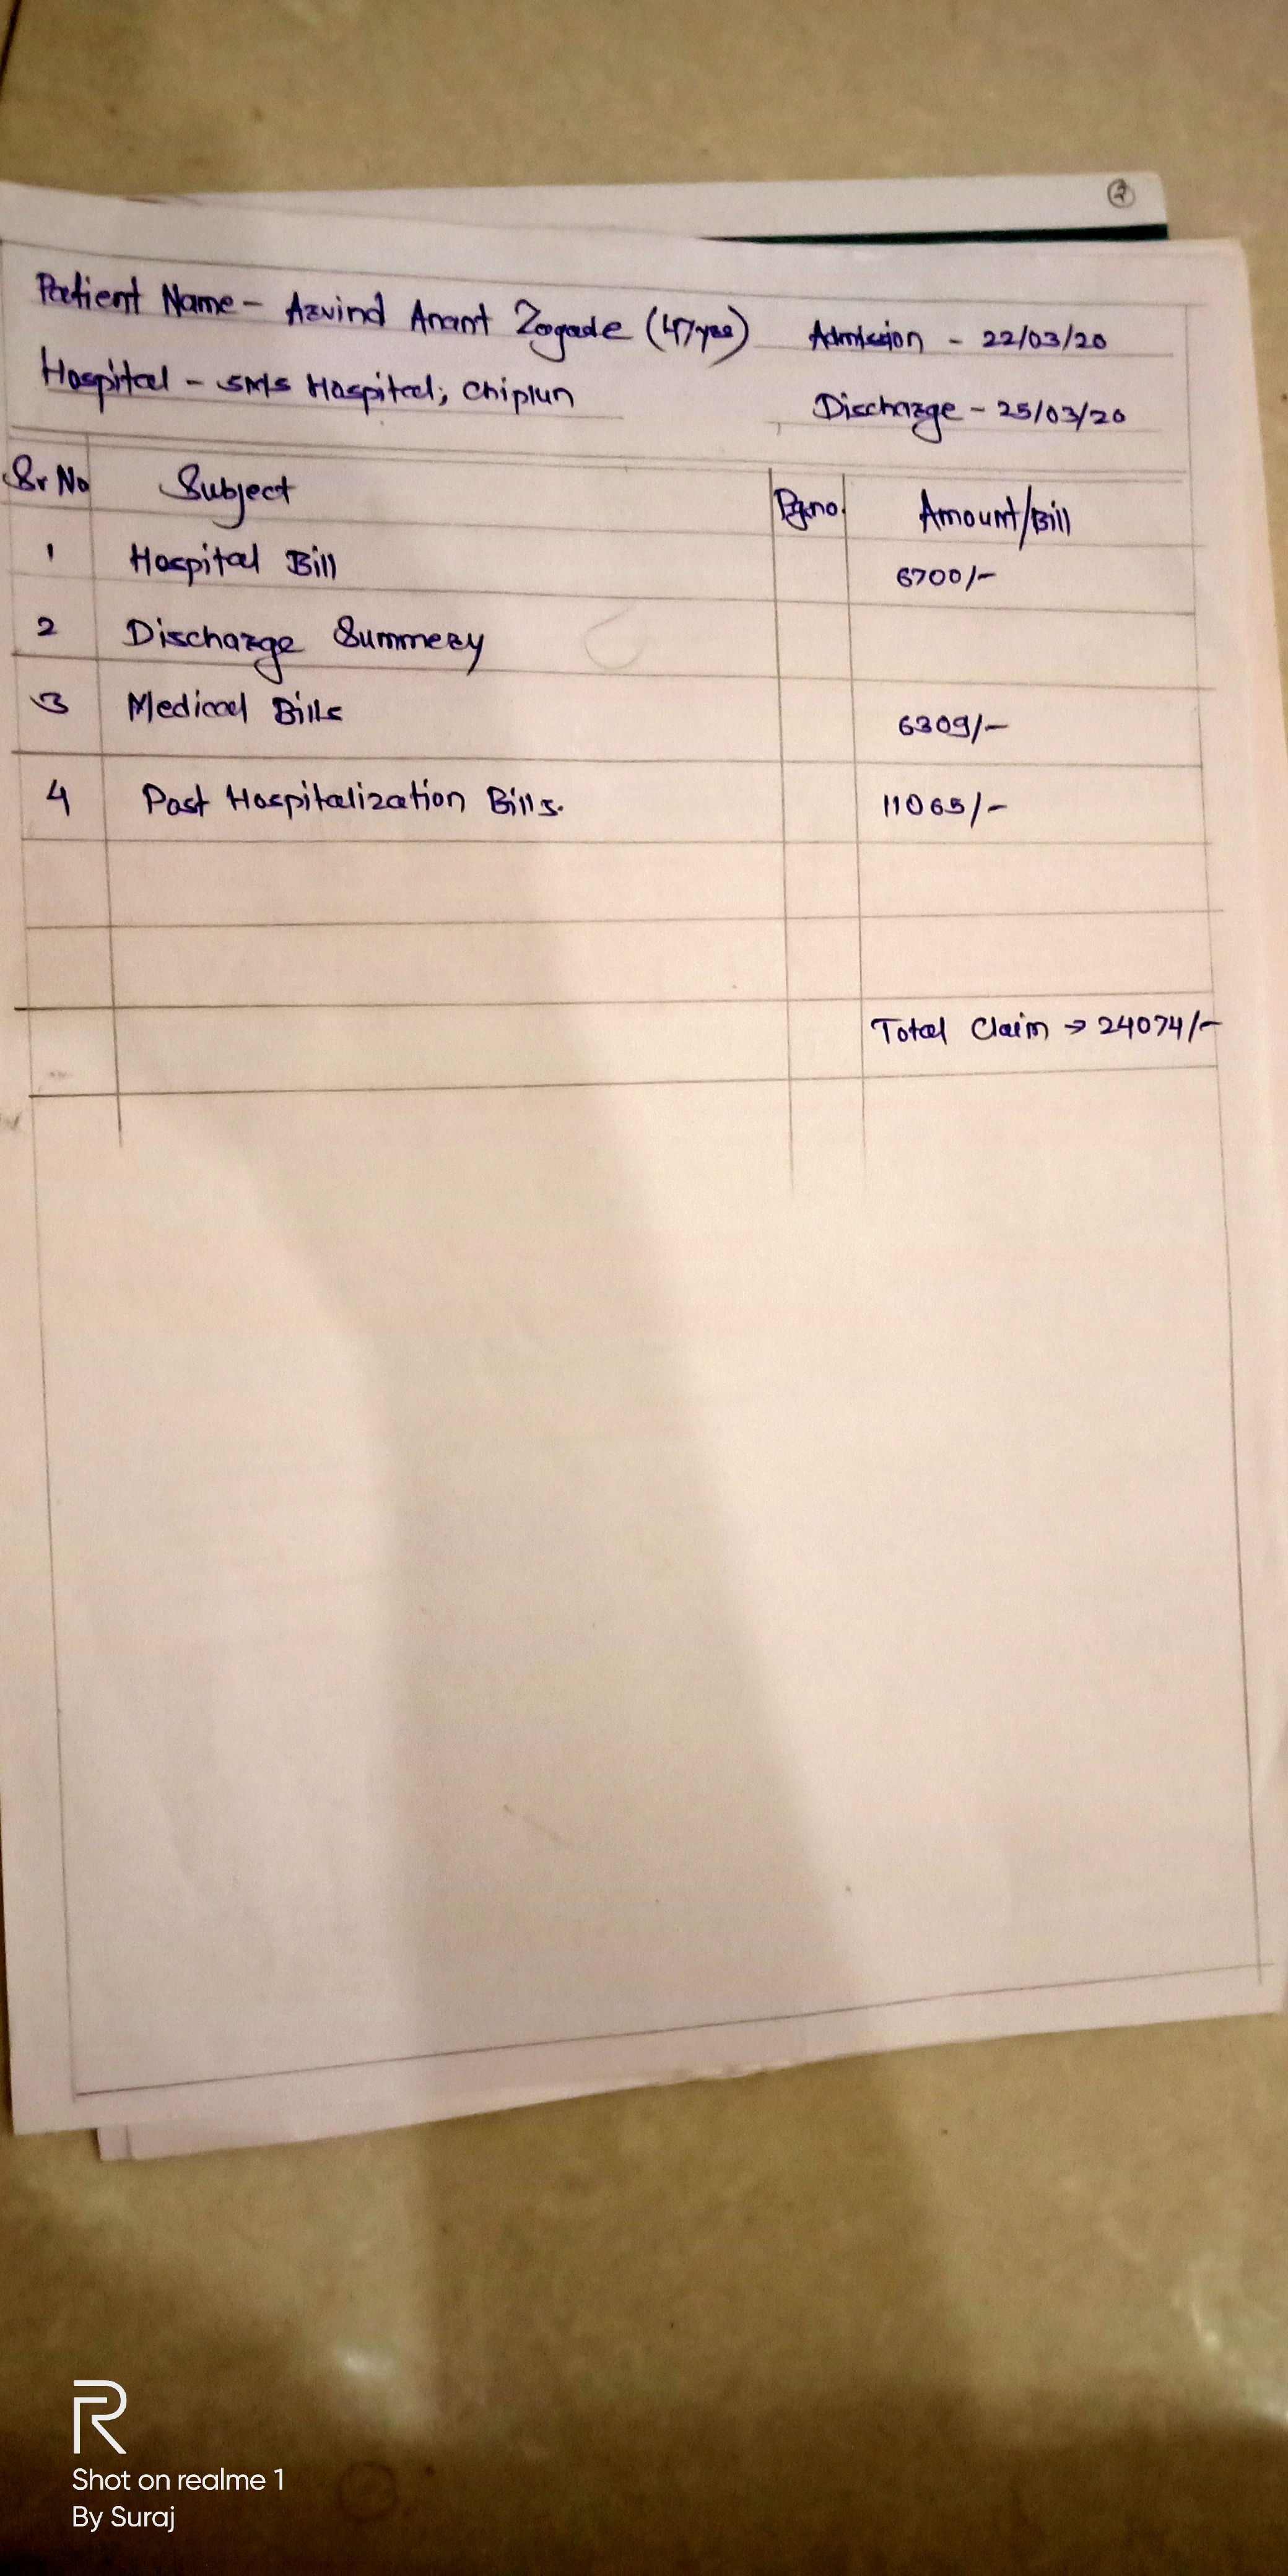 2
Patient Name - Arvind Anant Zogade (47yrs) Admission - 22/03/20
Hospital - SMS Hospital, Chiplun Discharge - 25/03/20
Sr No Subject Pg.no. Amount/Bill
1 Hospital Bill 6700/-
2 Discharge Summery
3 Medical Bills 6309/-
4 Post Hospitalization Bills. 11065/-
Total Claim → 24074/-
R
Shot on realme 1
By Suraj